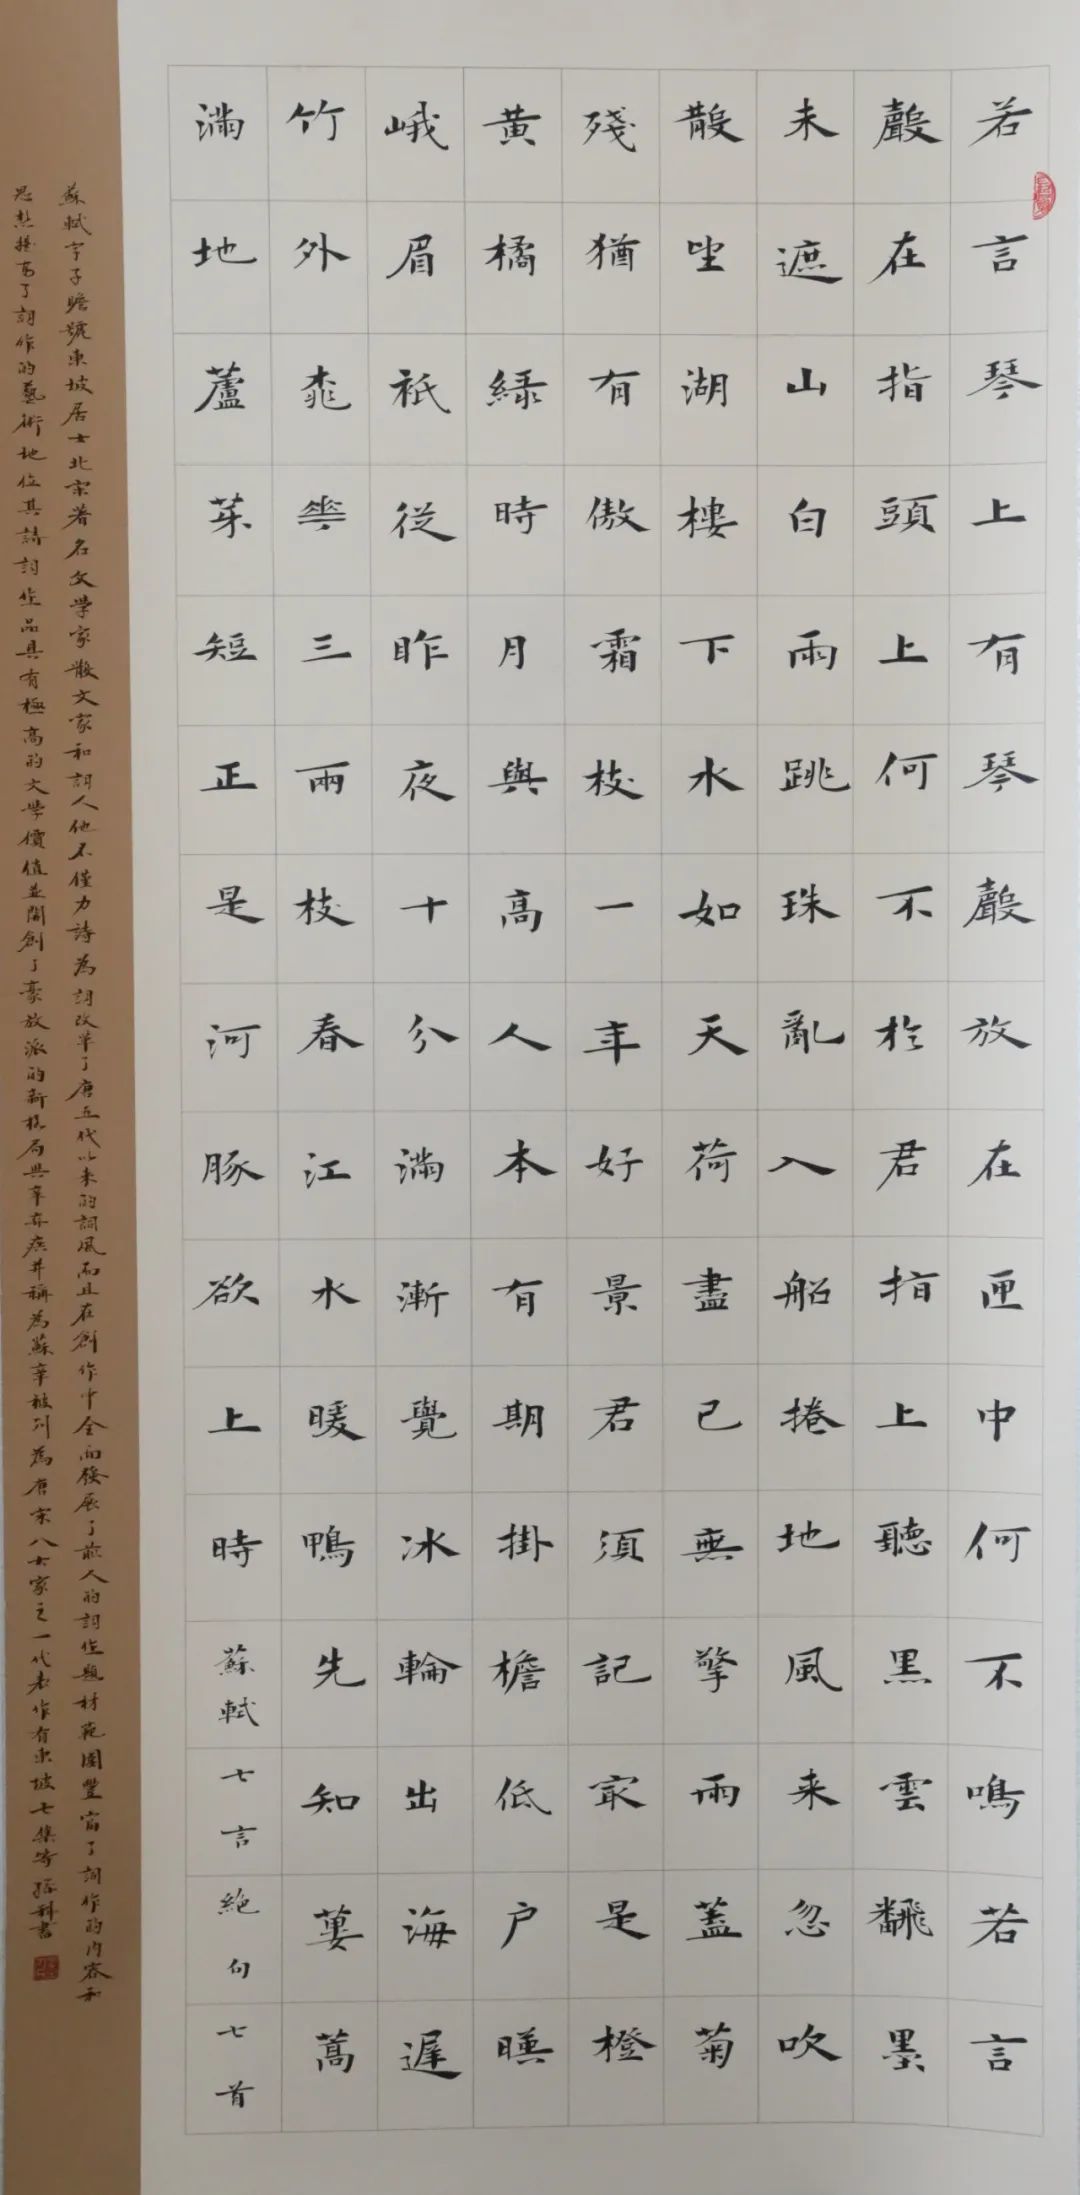 若言琴上有琴聲放在匣中何不鳴若言
聲在指頭上何不於君指上聽黑雲飜墨
未遮山白雨跳珠亂入船捲地風来忽吹
散望湖樓下水如天荷盡已無擎雨蓋菊
殘猶有傲霜枝一年好景君須記最是橙
黄橘緑時月與高人本有期掛檐低户暎
峨眉祇從昨夜十分滿漸覺冰輪出海遲
竹外桃花三兩枝春江水暖鴨先知蔞蒿
滿地蘆芽短正是河豚欲上時蘇軾七言絶句七首
蘇軾字子瞻號東坡居士北宋著名文學家散文家和詞人他不僅力詩為詞改革了唐五代以来的詞風而且在創作中全面發展了前人的詞作題材範圍豐富了詞作的内容和
思想提高了詞作的藝術地位其詩詞作品具有極高的文學價值並開創了豪放派的新格局與辛弃疾并稱為蘇辛被列為唐宋八大家之一代表作有東坡七集等科書